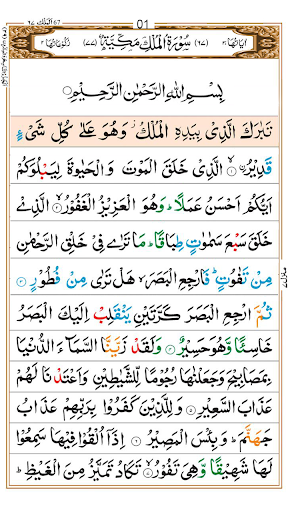 01
اٰيَاتُهَا ٣٠ (٦٧) سُوْرَةُ الْمُلْكِ مَكِّيَّةٌ (٧٧) رُكُوْعَاتُهَا ٢
بِسْمِ اللّٰهِ الرَّحْمٰنِ الرَّحِيْمِ
تَبٰرَكَ الَّذِیْ بِيَدِهِ الْمُلْكُ وَهُوَ عَلٰى كُلِّ شَیْءٍ
قَدِيْرُ ۙ الَّذِیْ خَلَقَ الْمَوْتَ وَالْحَيٰوةَ لِيَبْلُوَكُمْ
اَيُّكُمْ اَحْسَنُ عَمَلًا ؕ وَهُوَ الْعَزِيْزُ الْغَفُوْرُ ۙ الَّذِیْ
خَلَقَ سَبْعَ سَمٰوٰتٍ طِبَاقًا ؕ مَا تَرٰى فِیْ خَلْقِ الرَّحْمٰنِ
مِنْ تَفٰوُتٍ ؕ فَارْجِعِ الْبَصَرَ ۙ هَلْ تَرٰى مِنْ فُطُوْرٍ
ثُمَّ ارْجِعِ الْبَصَرَ كَرَّتَيْنِ يَنْقَلِبْ اِلَيْكَ الْبَصَرُ
خَاسِئًا وَّهُوَ حَسِيْرٌ وَلَقَدْ زَيَّنَّا السَّمَآءَ الدُّنْيَا
بِمَصَابِيْحَ وَجَعَلْنٰهَا رُجُوْمًا لِّلشَّيٰطِيْنِ وَاَعْتَدْنَا لَهُمْ
عَذَابَ السَّعِيْرِ وَلِلَّذِيْنَ كَفَرُوْا بِرَبِّهِمْ عَذَابُ
جَهَنَّمَ ؕ وَبِئْسَ الْمَصِيْرُ اِذَآ اُلْقُوْا فِيْهَا سَمِعُوْا
لَهَا شَهِيْقًا وَّهِیَ تَفُوْرُ ۙ تَكَادُ تَمَيَّزُ مِنَ الْغَيْظِ ؕ